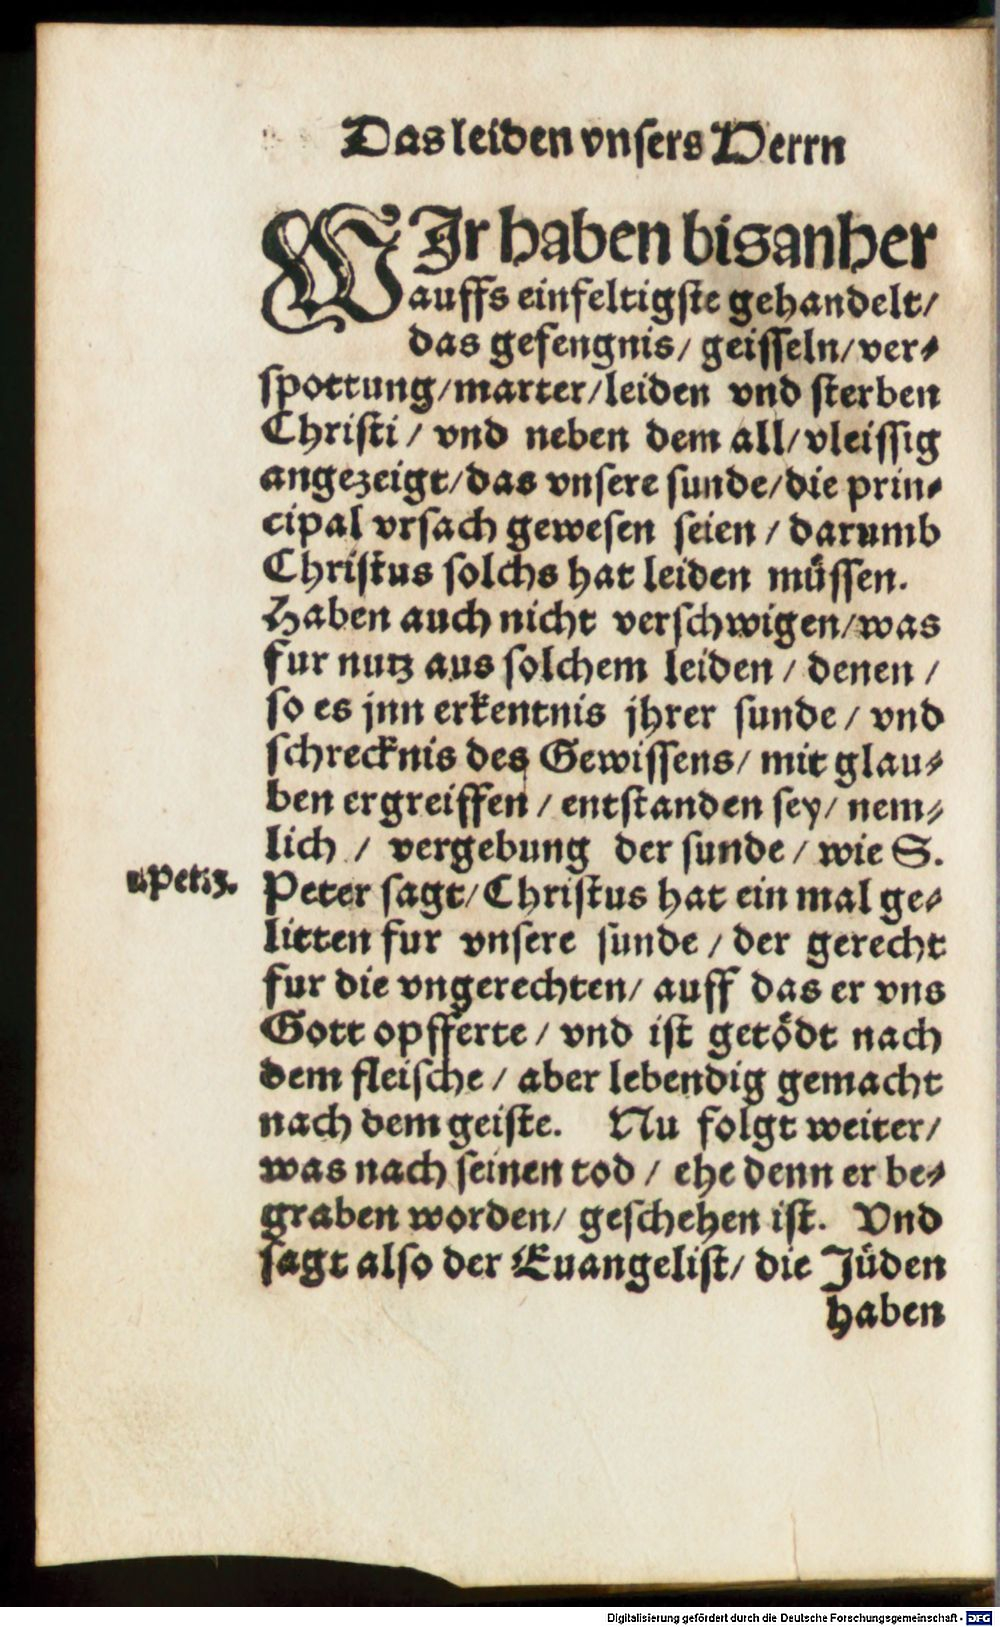 Das leiden vnsers Herrn
WJr haben bisanher
auffs einfeltigste gehandelt/
das gefengnis/ geisseln/ ver-
spottung/ marter/ leiden vnd sterben
Christi / vnd neben dem all/ vleissig
angezeigt/ das vnsere sunde/ die prin-
cipal vrsach gewesen seien / darumb
Christus solchs hat leiden müssen.
Haben auch nicht verschwigen/ was
fur nutz aus solchem leiden / denen /
so es jnn erkentnis jhrer sunde / vnd
schrecknis des Gewissens/ mit glau-
ben ergreiffen / entstanden sey/ nem-
lich / vergebung der sunde / wie S.
1. Pet. 3.
Peter sagt/ Christus hat ein mal ge-
litten fur vnsere sunde / der gerecht
fur die vngerechten/ auff das er vns
Gott opfferte / vnd ist getödt nach
dem fleische / aber lebendig gemacht
nach dem geiste. Nu folgt weiter/
was nach seinen tod / ehe denn er be-
graben worden/ geschehen ist. Vnd
sagt also der Euangelist/ die Jüden
haben
Digitalisierung gefördert durch die Deutsche Forschungsgemeinschaft - DFG